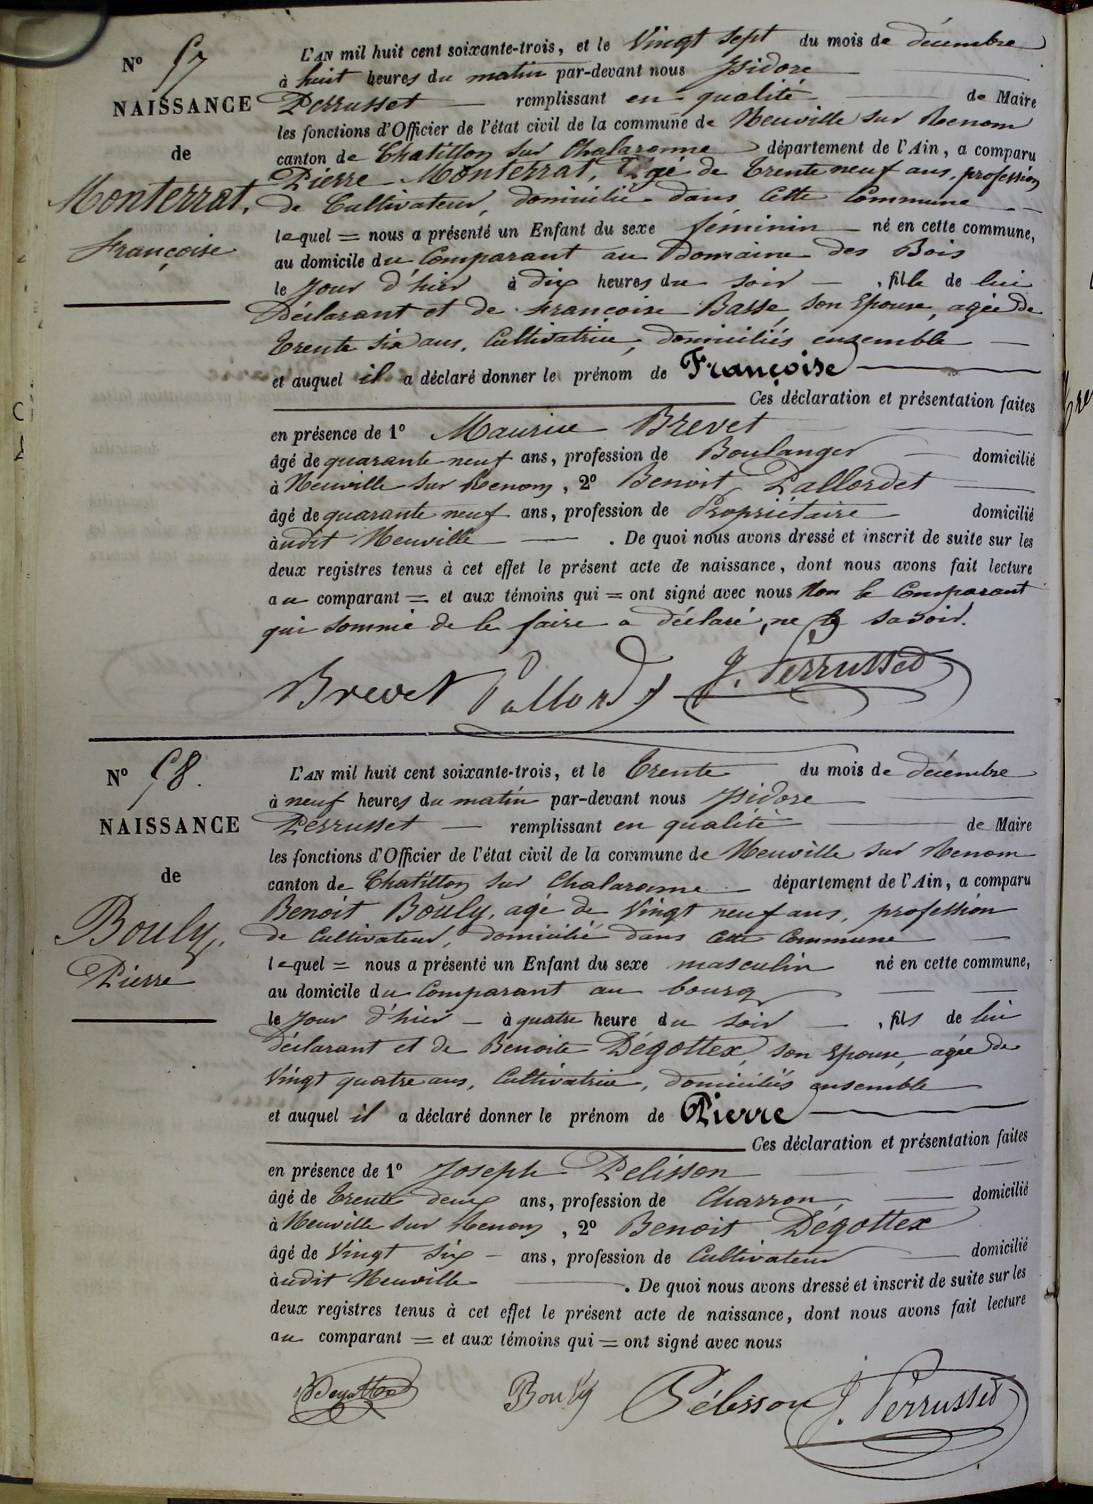 N° 57
NAISSANCE
de
Monterrat,
Françoise
L'AN mil huit cent soixante-trois, et le Vingt sept du mois de décembre
à huit heures du matin par-devant nous Ysidore
Perrusset remplissant en qualité de Maire
les fonctions d'Officier de l'état civil de la commune de Neuville sur Renom
canton de Chatillon sur Chalaronne département de l'Ain, a comparu
Pierre Monterrat, Agé de trente neuf ans, profession
de Cultivateur, domicilié dans cette Commune
lequel = nous a présenté un Enfant du sexe féminin né en cette commune,
au domicile du Comparant au Domaine des Bois
le Jour d'hier à dix heures du soir , fille de lui
Déclarant et de Françoise Basse, son Epouse, agée de
trente six ans, Cultivatrice, domiciliés ensemble
et auquel il a déclaré donner le prénom de Françoise
Ces déclaration et présentation faites
en présence de 1° Maurice Brevet
âgé de quarante neuf ans, profession de Boulanger domicilié
à Neuville sur Renom, 2° Benoit Pallordet
âgé de quarante neuf ans, profession de Propriétaire domicilié
audit Neuville . De quoi nous avons dressé et inscrit de suite sur les
deux registres tenus à cet effet le présent acte de naissance, dont nous avons fait lecture
au comparant = et aux témoins qui = ont signé avec nous Non le Comparant
qui sommé de le faire a déclaré, ne savoir.
Brevet Pallord J. Perrusset
N° 58.
NAISSANCE
de
Bouly,
Pierre
L'AN mil huit cent soixante-trois, et le trente du mois de décembre
à neuf heures du matin par-devant nous Ysidore
Perrusset remplissant en qualité de Maire
les fonctions d'Officier de l'état civil de la commune de Neuville sur Renom
canton de Chatillon sur Chalaronne département de l'Ain, a comparu
Benoit Bouly, agé de Vingt neuf ans, profession
de Cultivateur, domicilié dans cette Commune
lequel = nous a présenté un Enfant du sexe masculin né en cette commune,
au domicile du Comparant au bourg
le Jour d'hier à quatre heure du soir , fils de lui
déclarant et de Benoite Dégottex, son Epouse, agée de
Vingt quatre ans, Cultivatrice, domiciliés ensemble
et auquel il a déclaré donner le prénom de Pierre
Ces déclaration et présentation faites
en présence de 1° Joseph Pelisson
âgé de trente deux ans, profession de Charron domicilié
à Neuville sur Renom, 2° Benoit Dégottex
âgé de Vingt six ans, profession de Cultivateur domicilié
audit Neuville . De quoi nous avons dressé et inscrit de suite sur les
deux registres tenus à cet effet le présent acte de naissance, dont nous avons fait lecture
au comparant = et aux témoins qui = ont signé avec nous
Bouly Pélisson J. Perrusset